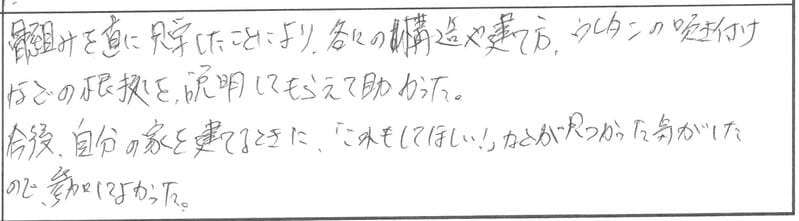 骨組みを直に見学したことにより、各々の構造や建て方、ウレタンの吹き付け
などの根拠を、説明してもらえて助かった。
今後、自分の家を建てるときに、「これもしてほしい!」などが見つかった気がした
ので、参加してよかった。